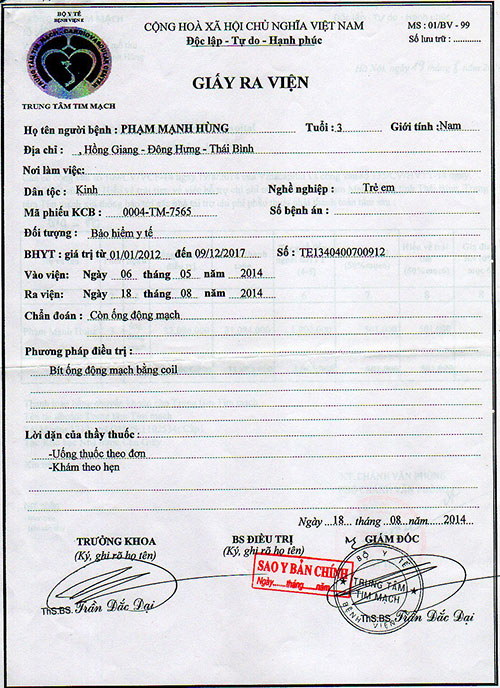 BỘ Y TẾ
BỆNH VIỆN E
TRUNG TÂM TIM MẠCH
CỘNG HOÀ XÃ HỘI CHỦ NGHĨA VIỆT NAM
Độc lập - Tự do - Hạnh phúc
MS : 01/BV - 99
Số lưu trữ : ............
GIẤY RA VIỆN
Họ tên người bệnh : PHẠM MẠNH HÙNG Tuổi : 3 Giới tính : Nam
Địa chỉ : , Hồng Giang - Đông Hưng - Thái Bình
Nơi làm việc:
Dân tộc : Kinh Nghề nghiệp : Trẻ em
Mã phiếu KCB : 0004-TM-7565 Số bệnh án :
Đối tượng : Bảo hiểm y tế
BHYT : giá trị từ 01/01/2012 đến 09/12/2017 Số : TE1340400700912
Vào viện: Ngày 06 tháng 05 năm 2014
Ra viện: Ngày 18 tháng 08 năm 2014
Chẩn đoán : Còn ống động mạch
Phương pháp điều trị :
Bít ống động mạch bằng coil
Lời dặn của thầy thuốc :
-Uống thuốc theo đơn
-Khám theo hẹn
Ngày 18 tháng 08 năm 2014
TRƯỞNG KHOA BS ĐIỀU TRỊ GIÁM ĐỐC
(Ký, ghi rõ họ tên) (Ký, ghi rõ họ tên)
SAO Y BẢN CHÍNH
Ngày......tháng......năm
BỘ Y TẾ
TRUNG TÂM
TIM MẠCH
BỆNH VIỆN E
ThS.BS. Trần Đắc Đại ThS.BS. Trần Đắc Đại